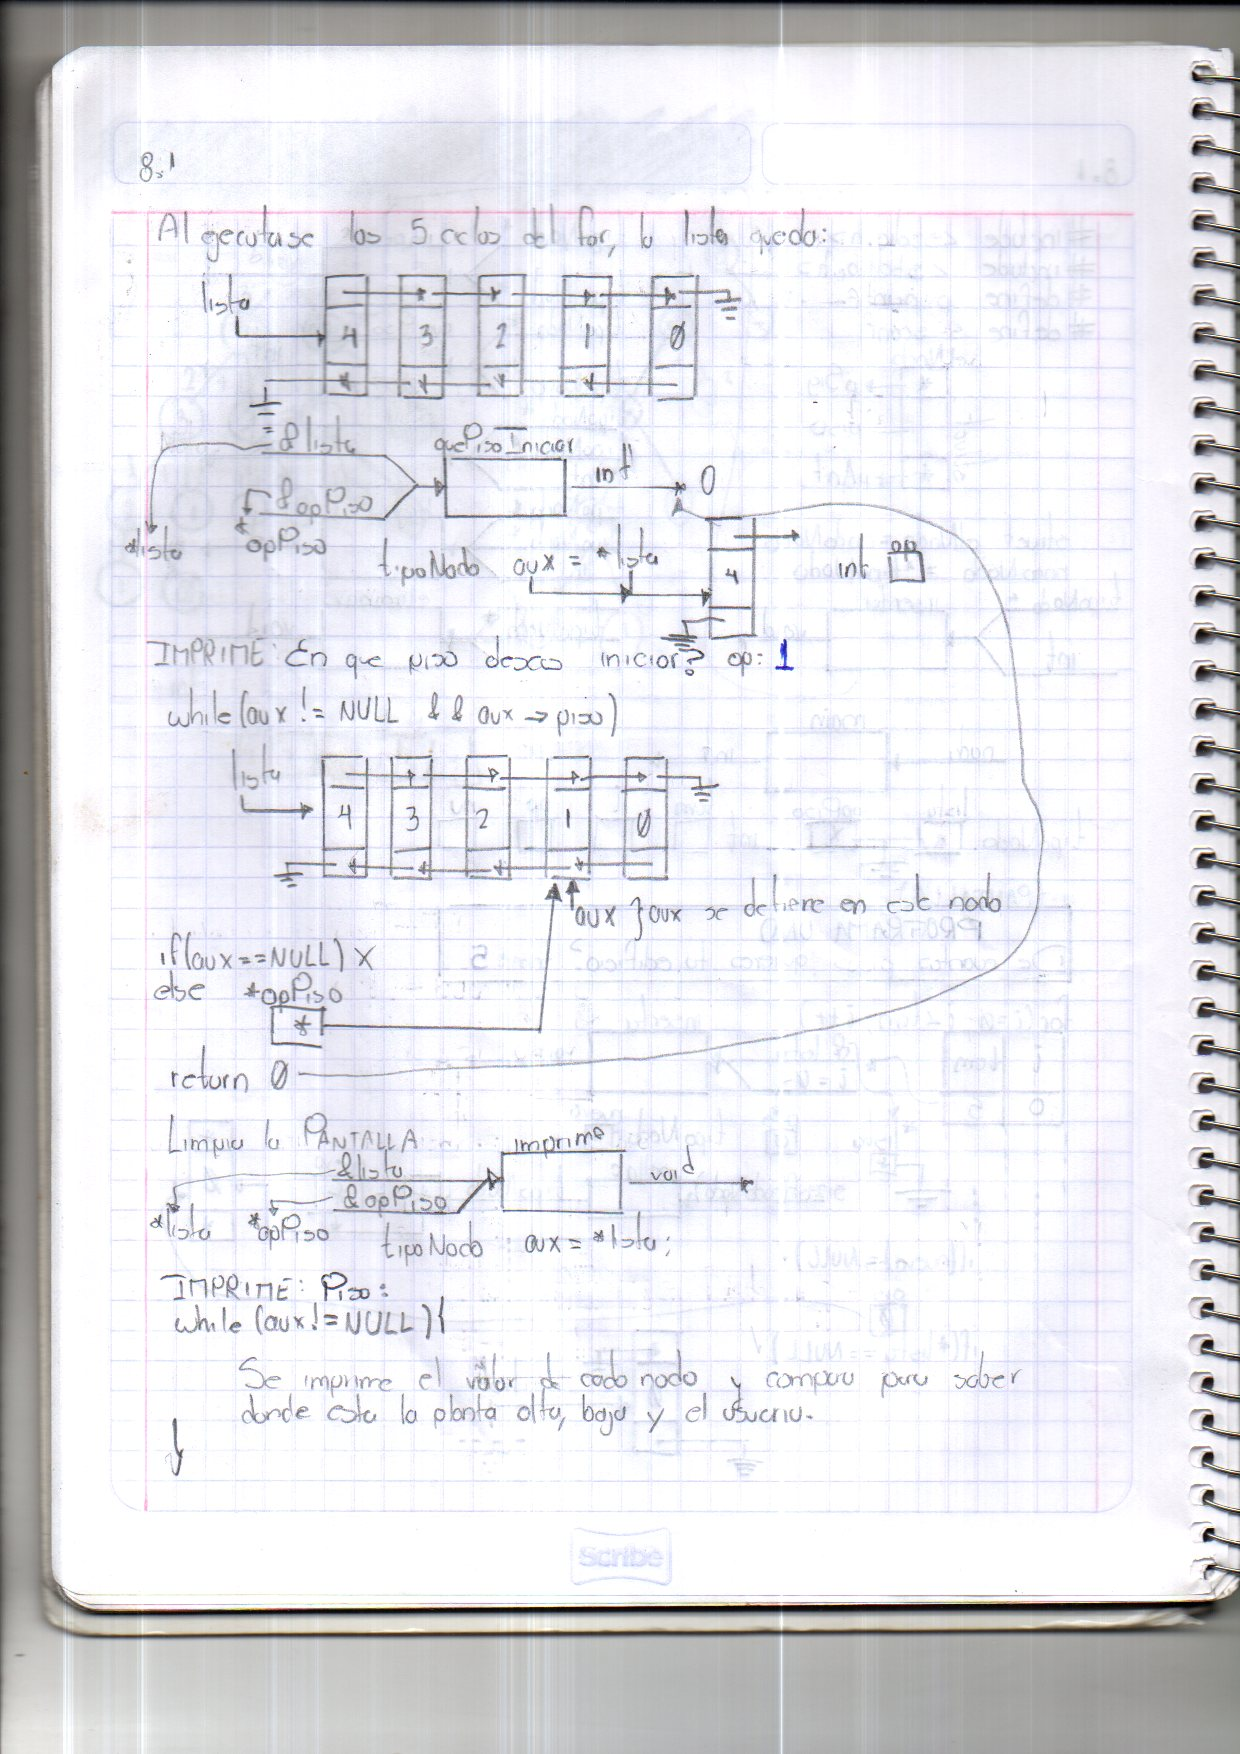 8.1
Al ejecutase los 5 ciclos del for, la lista queda:
lista
4 3 2 1 0
&lista quePisoInicior int 0
&opPiso
*lista *opPiso tipoNodo aux = *lista 4 int op
IMPRIME: En que piso deseas inicior? op: 1
while(aux != NULL && aux → piso)
lista
4 3 2 1 0
aux } aux se detiene en este nodo
if(aux==NULL) X
else *opPiso
*
return 0
Limpia la PANTALLA imprime
&lista void
&opPiso
*lista *opPiso tipoNodo aux = *lista;
IMPRIME: Piso:
while (aux!=NULL){
Se imprime el valor de cada nodo y compara para saber
donde esta la planta alta, baja y el usuario.
Scribe